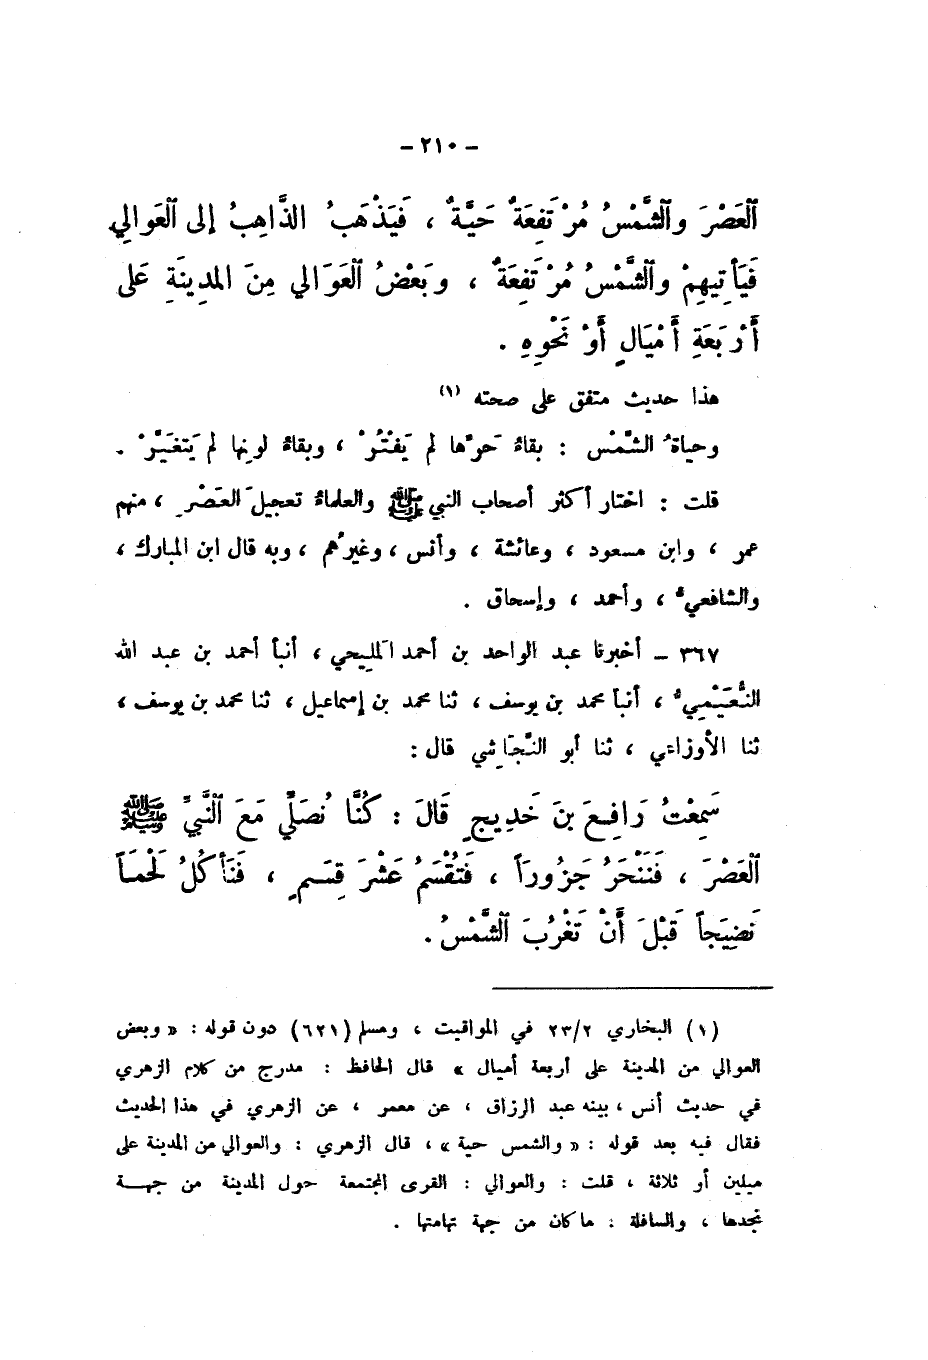 – ٢١٠ –
ٱلْعَصْرَ وٱلشَّمْسُ مُرْتَفِعَةٌ حَيَّةٌ ، فَيَذْهَبُ الذَّاهِبُ إلى ٱلْعَوالِي
فَيَأْتِيهِمْ وٱلشَّمْسُ مُرْتَفِعَةٌ ، وبَعْضُ ٱلْعَوَالي مِنَ المَدِينَةِ عَلى
أَرْبَعَةِ أَمْيَالٍ أَوْ نَحْوِهِ .
هذا حديث متفق على صحته (١)
وحياةُ الشَّمْس : بقاءُ حَرِّها لم يَفْتُرْ ، وبقاءُ لونِها لم يَتغَيَّرْ .
قلت : اختار أكثر أصحاب النبي ﷺ والعلماءُ تعجيلَ العَصْرِ ، منهم
عمر ، وابن مسعود ، وعائشة ، وأنس ، وغيرُهم ، وبه قال ابن المبارك ،
والشافعيُّ ، وأحمد ، وإسحاق .
٣٦٧ – أخبرنا عبد الواحد بن أحمد المَلِيحي ، أنبأ أحمد بن عبد الله
النُّعَيْمِيُّ ، أنبأ محمد بن يوسف ، ثنا محمد بن إسماعيل ، ثنا محمد بن يوسف ،
ثنا الأوزاعي ، ثنا أبو النَّجَاشي قال :
سَمِعْتُ رَافِعَ بنَ خَدِيجٍ قَالَ : كُنَّا نُصَلِّي مَعَ ٱلنَّبِيِّ ﷺ
ٱلْعَصْرَ ، فَنَنْحَرُ جَزُوراً ، فَتُقْسَمُ عَشْرَ قِسَمٍ ، فَنَأكُلُ لَحْمَاً
نَضِيَجاً قَبْلَ أَنْ تَغْرُبَ ٱلشَّمْسُ .
(١) البخاري ٢٣/٢ في المواقيت ، ومسلم (٦٢١) دون قوله : « وبعض
العوالي من المدينة على أربعة أميال » قال الحافظ : مدرج من كلام الزهري
في حديث أنس ، بينه عبد الرزاق ، عن معمر ، عن الزهري في هذا الحديث
فقال فيه بعد قوله : « والشمس حية » ، قال الزهري : والعوالي من المدينة على
ميلين أو ثلاثة ، قلت : والعوالي : القرى المجتمعة حول المدينة من جهــة
نجدها ، والسافلة : ما كان من جهة تهامتها .